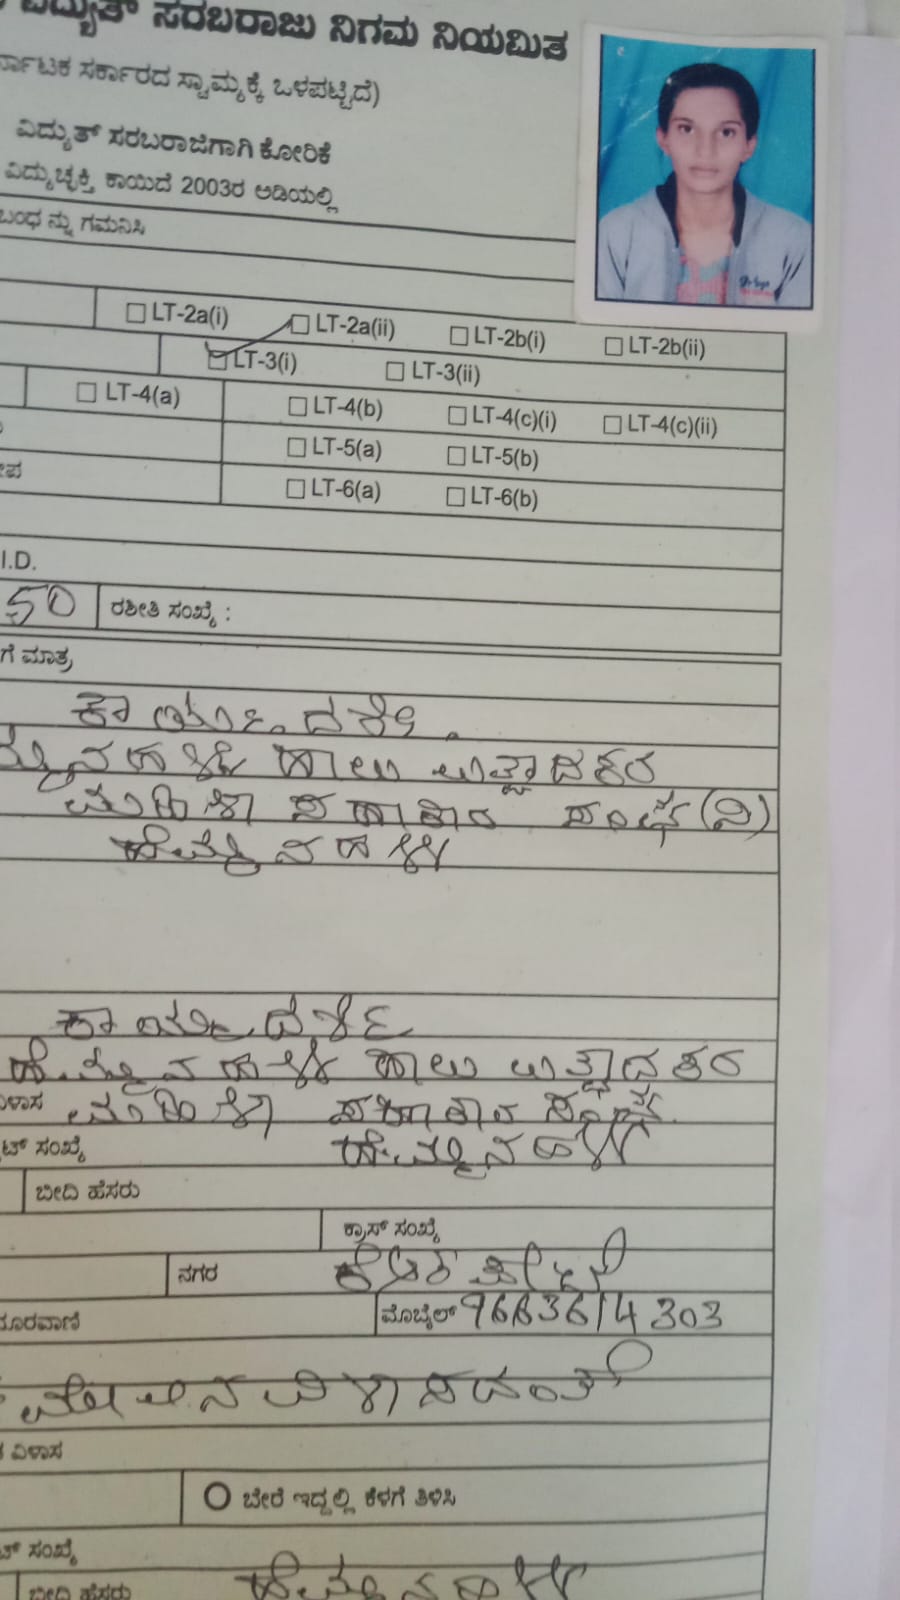 ವಿದ್ಯುತ್ ಸರಬರಾಜು ನಿಗಮ ನಿಯಮಿತ
ಸರ್ಕಾರದ ಸ್ವಾಮ್ಯಕ್ಕೆ ಒಳಪಟ್ಟಿದೆ)
ವಿದ್ಯುತ್ ಸರಬರಾಜಿಗಾಗಿ ಕೋರಿಕೆ
ವಿದ್ಯುಚ್ಛಕ್ತಿ ಕಾಯಿದೆ 2003ರ ಅಡಿಯಲ್ಲಿ
ಗಮನಿಸಿ
LT-2a(i) LT-2a(ii) LT-2b(i) LT-2b(ii)
LT-3(i) LT-3(ii)
LT-4(a) LT-4(b) LT-4(c)(i) LT-4(c)(ii)
LT-5(a) LT-5(b)
LT-6(a) LT-6(b)
I.D.
50 ರಶೀತಿ ಸಂಖ್ಯೆ :
ಮಾತ್ರ
ಕಾರ್ಯದರ್ಶಿ
ಹಾಲು ಉತ್ಪಾದಕರ
ಮಹಿಳಾ ಸಹಕಾರ ಸಂಘ (ನಿ)
ಹೆಮ್ಮನಹಳ್ಳಿ
ಕಾರ್ಯದರ್ಶಿ
ಹೆಮ್ಮನಹಳ್ಳಿ ಹಾಲು ಉತ್ಪಾದಕರ
ಮಹಿಳಾ ಸಹಕಾರ ಸಂಘ
ಸಂಖ್ಯೆ ಹೆಮ್ಮನಹಳ್ಳಿ
ಬೀದಿ ಹೆಸರು
ಕ್ರಾಸ್ ಸಂಖ್ಯೆ
ನಗರ
ಮೊಬೈಲ್ 9663614303
ಮೇಲಿನ ವಿಳಾಸದಂತೆ
ವಿಳಾಸ
ಬೇರೆ ಇದ್ದಲ್ಲಿ ಕೆಳಗೆ ತಿಳಿಸಿ
ಸಂಖ್ಯೆ
ಬೀದಿ ಹೆಸರು ಹೆಮ್ಮನಹಳ್ಳಿ